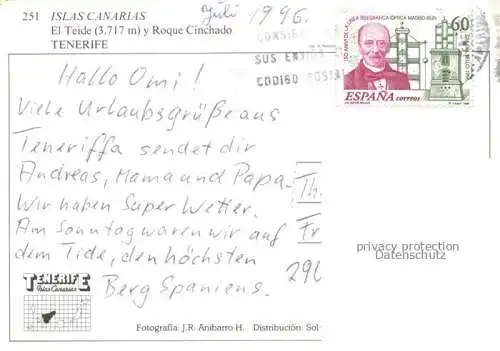 251 ISLAS CANARIAS
El Teide (3.717 m) y Roque Cinchado
TENERIFE
Juli 1996.
CONSIG
SUS ENVIOS
CODIGO POSTAL
150 AÑOS DE LA LINEA TELEGRAFICA-OPTICA MADRID-IRUN
60
ESPAÑA correos
Hallo Omi!
Viele Urlaubsgrüße aus
Teneriffa sendet dir
Andreas, Mama und Papa.
Wir haben Super Wetter.
Am Sonntag waren wir auf
dem Tide, den höchsten
Berg Spaniens.
Th.
Fr
290
privacy protection
Datenschutz
TENERIFE
Islas Canarias
Fotografía: J.R. Anibarro H. Distribución: Sol